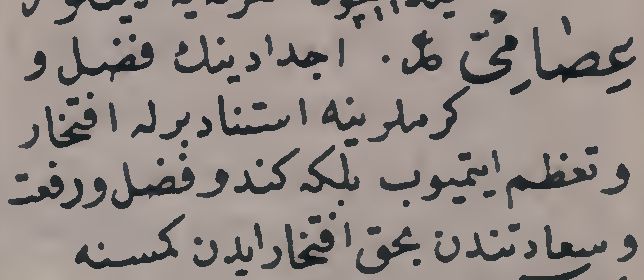 عصامى در. اجدادينك فضل و
كرملرينه استناد برله افتخار
و تعظم ايتميوب بلكه كندو فضل و رفعت
و سعادتندن بحق افتخار ايدن كمسنه